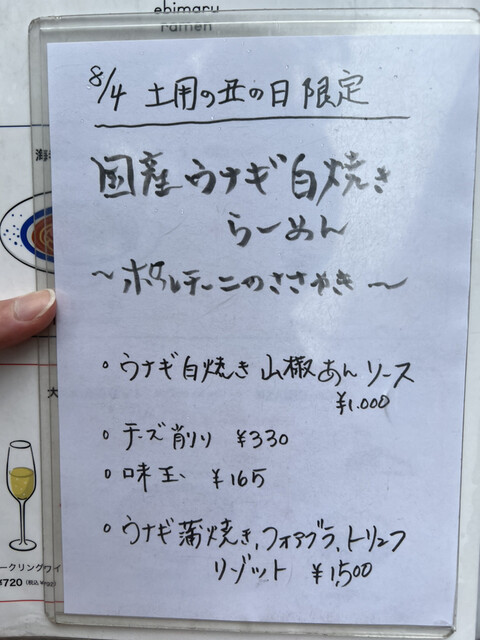 ebimaru
ramen
8/4 土用の丑の日限定
国産ウナギ白焼き
らーめん
〜ポルチーニのささやき〜
。ウナギ白焼き山椒あんソース
¥1.000
。チーズ削り ¥330
。味玉 ¥165
。ウナギ蒲焼き,フォアグラ,トリュフ
リゾット ¥1,500
ークリングワイ
¥720